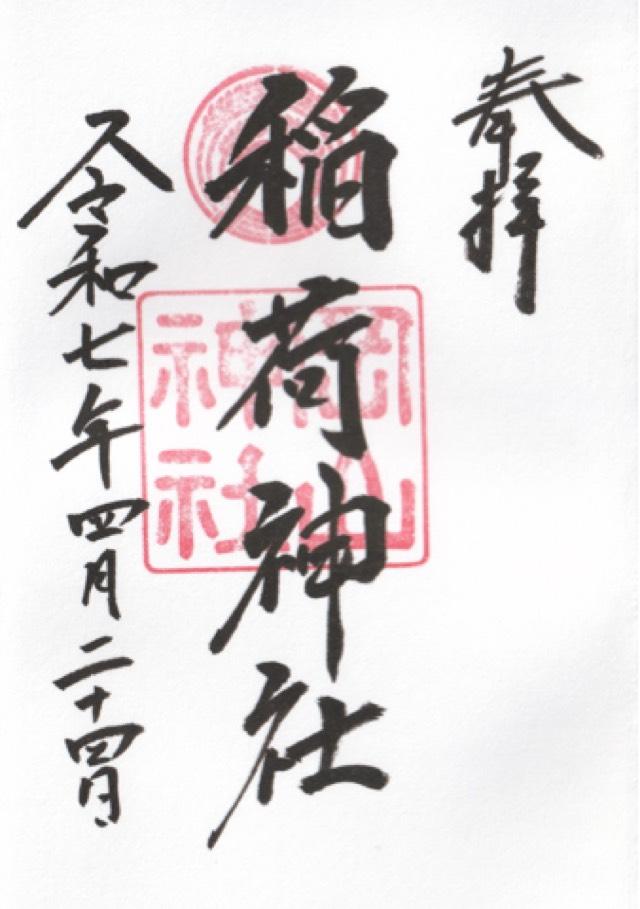 奉拝
稲荷神社
岡山
神社
令和七年四月二十四日